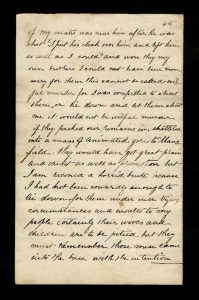 45
of my mates was near him after he was
shot I put his cloak over him and left him
as well as I could and were they my
own brothers I could not have been more
sorry for them this cannot be called wil-
ful murder for I was compelled to shoot
them, or lie down and let them shoot
me it would not be wilful murder
if they packed our remains in shattered
into a mass of animated gore to Mans
field. They would have got great praise
and credit as well as promotion but
I am reconed a horrid brute because
I had not been cowardly enough to
lie down for them under such trying
circumstances and insults to my
people certainly their wives and
children are to be pitied but they
must remember those men came
into the bush with the intention